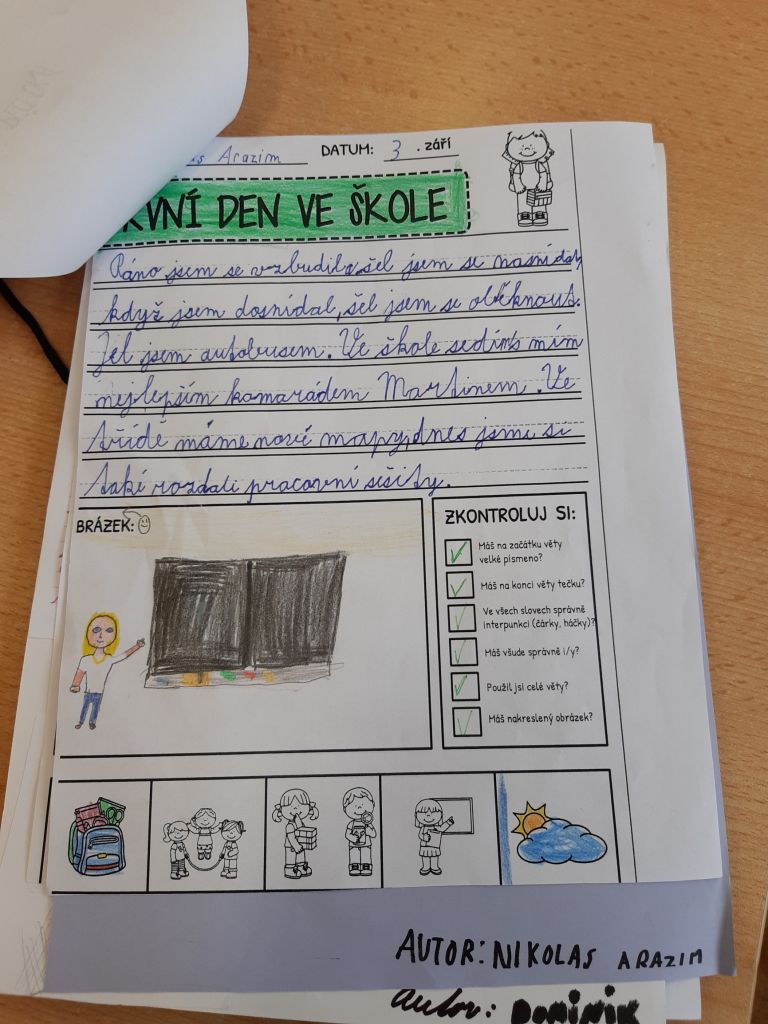 Arazim DATUM: 3 . září
RVNÍ DEN VE ŠKOLE
Ráno jsem se vzbudil a šel jsem se nasnídat,
když jsem dosnídal, šel jsem se obléknout.
Jel jsem autobusem. Ve škole sedím s mím
nejlepším kamarádem Martinem. Ve
třídě máme nové mapy, dnes jsme si
také rozdali pracovní sešity.
BRÁZEK:
ZKONTROLUJ SI:
Máš na začátku věty
velké písmeno?
Máš na konci věty tečku?
Ve všech slovech správně
interpunkci (čárky, háčky)?
Máš všude správně i/y?
Použil jsi celé věty?
Máš nakreslený obrázek?
AUTOR: NIKOLAS ARAZIM
Autor: DOMINIK